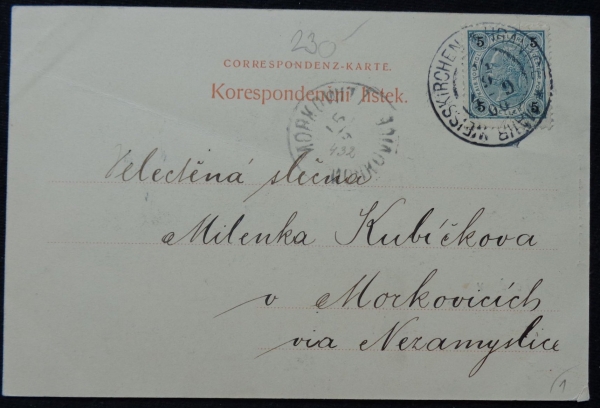 230
CORRESPONDENZ-KARTE.
Korespondenční lístek.
5 5
5 5
MÄHR. WEISSKIRCHEN
MORKOVICE
Velectěná slečna
Milenka Kubíčkova
v Morkovicích
via Nezamyslice